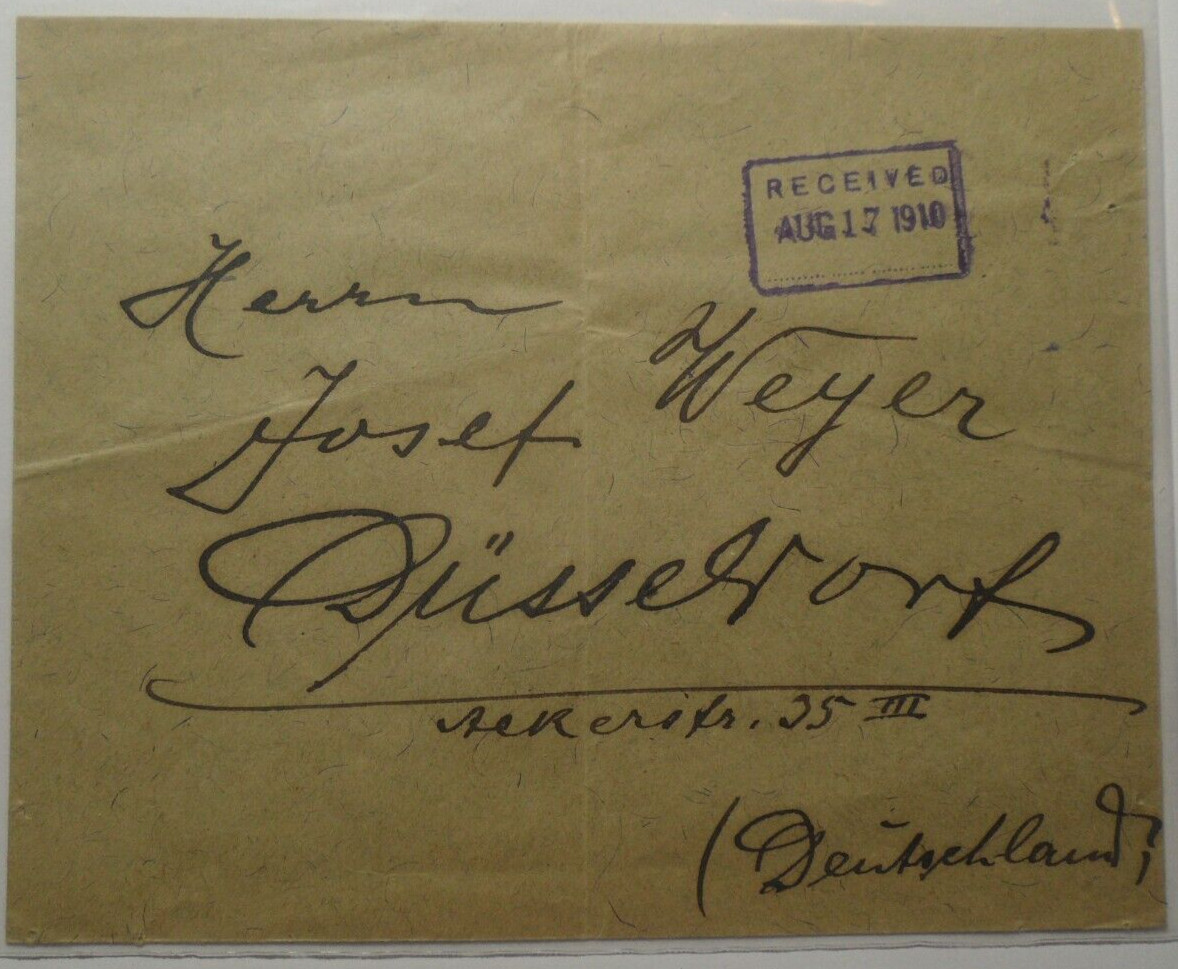 RECEIVED
AUG 17 1910
Herrn
Josef Weyer
Düsseldorf
Ackerstr. 35 III
(Deutschland)